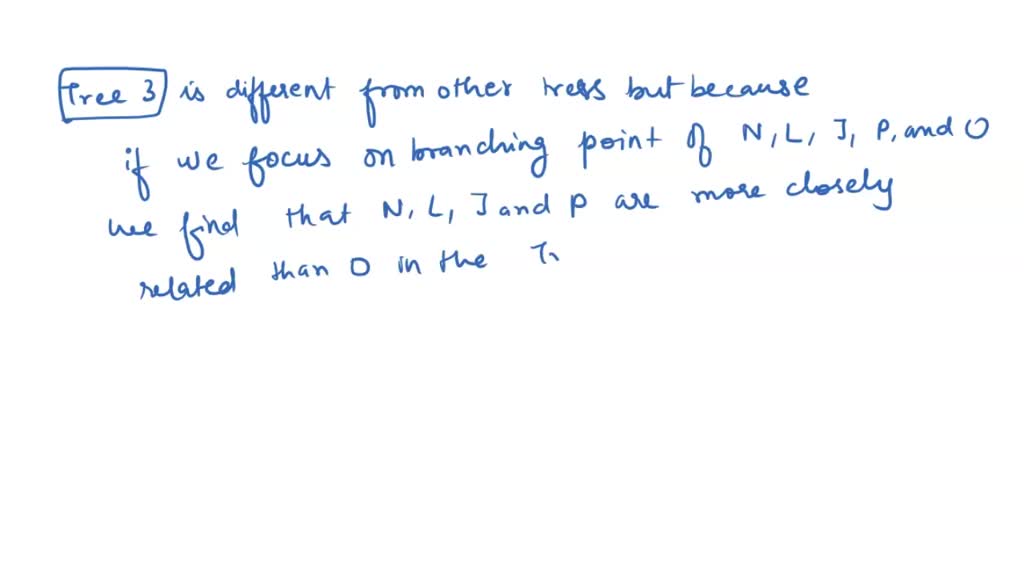 Tree 3 is different from other tress but because
if we focus on branching point of N, L, J, P, and O
we find that N, L, J and P are more closely
related than O in the Tr